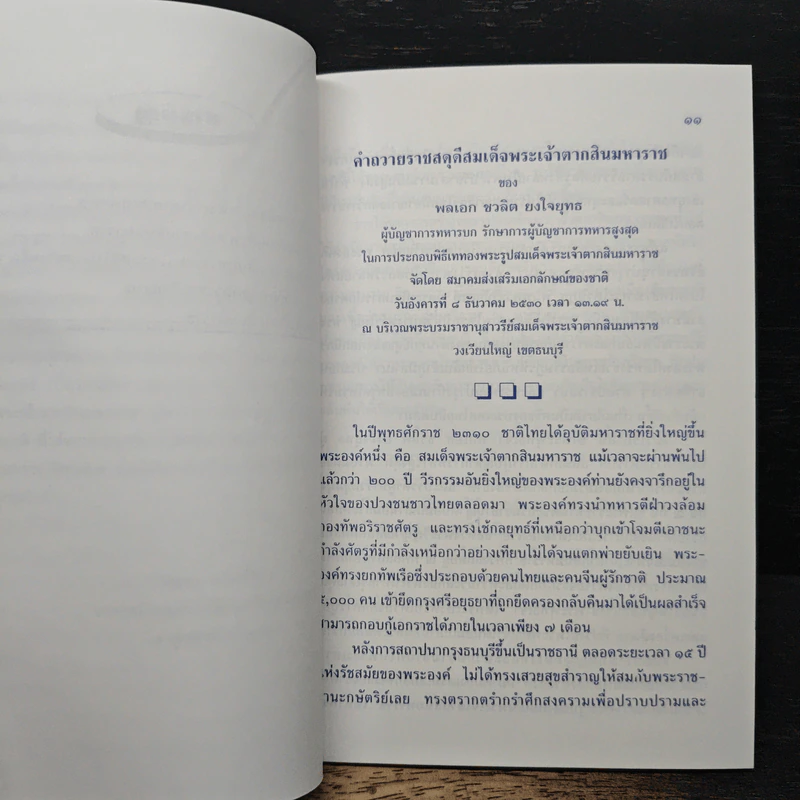 ๑๑
คำถวายราชสดุดีสมเด็จพระเจ้าตากสินมหาราช
ของ
พลเอก ชวลิต ยงใจยุทธ
ผู้บัญชาการทหารบก รักษาการผู้บัญชาการทหารสูงสุด
ในการประกอบพิธีเททองพระรูปสมเด็จพระเจ้าตากสินมหาราช
จัดโดย สมาคมส่งเสริมเอกลักษณ์ของชาติ
วันอังคารที่ ๘ ธันวาคม ๒๕๓๐ เวลา ๑๓.๑๙ น.
ณ บริเวณพระบรมราชานุสาวรีย์สมเด็จพระเจ้าตากสินมหาราช
วงเวียนใหญ่ เขตธนบุรี
ในปีพุทธศักราช ๒๓๑๐ ชาติไทยได้อุบัติมหาราชที่ยิ่งใหญ่ขึ้น
พระองค์หนึ่ง คือ สมเด็จพระเจ้าตากสินมหาราช แม้เวลาจะผ่านพ้นไป
แล้วกว่า ๒๐๐ ปี วีรกรรมอันยิ่งใหญ่ของพระองค์ท่านยังคงจารึกอยู่ใน
หัวใจของปวงชนชาวไทยตลอดมา พระองค์ทรงนำทหารตีฝ่าวงล้อม
กองทัพอริราชศัตรู และทรงใช้กลยุทธ์ที่เหนือกว่าบุกเข้าโจมตีเอาชนะ
กำลังศัตรูที่มีกำลังเหนือกว่าอย่างเทียบไม่ได้จนแตกพ่ายยับเยิน พระ-
องค์ทรงยกทัพเรือซึ่งประกอบด้วยคนไทยและคนจีนผู้รักชาติ ประมาณ
๕,๐๐๐ คน เข้ายึดกรุงศรีอยุธยาที่ถูกยึดครองกลับคืนมาได้เป็นผลสำเร็จ
สามารถกอบกู้เอกราชได้ภายในเวลาเพียง ๗ เดือน
หลังการสถาปนากรุงธนบุรีขึ้นเป็นราชธานี ตลอดระยะเวลา ๑๕ ปี
แห่งรัชสมัยของพระองค์ ไม่ได้ทรงเสวยสุขสำราญให้สมกับพระราช-
ฐานะกษัตริย์เลย ทรงตรากตรำกรำศึกสงครามเพื่อปราบปรามและ